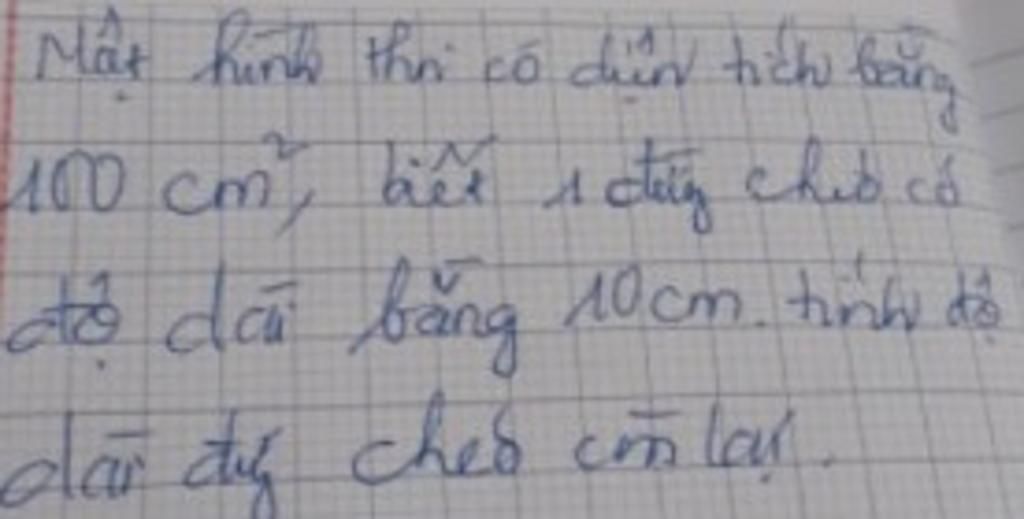 Một hình thoi có diện tích bằng
100 cm², biết 1 đường chéo có
độ dài bằng 10cm. tính độ
dài đg chéo còn lại.